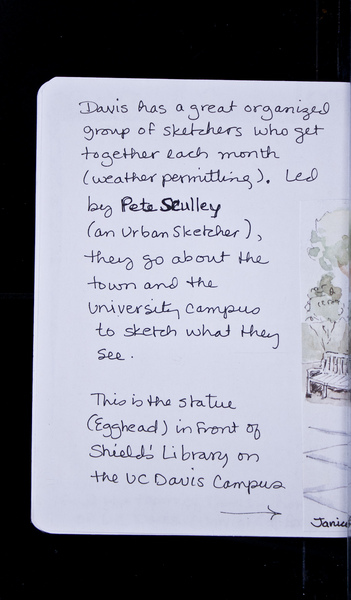 Davis has a great organized
group of sketchers who get
together each month
(weather permitting). Led
by Pete Sculley
(an Urban Sketcher),
they go about the
town and the
University Campus
to sketch what they
see.
This is the statue
(Egghead) in front of
Shield's Library on
the UC Davis Campus
→
Janic